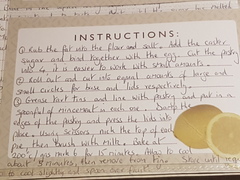 INSTRUCTIONS:
① Rub the fat into the flour and salt. Add the caster
sugar and bind together with the egg. Cut the pastry
into 4, it is easier to work with small amounts.
② Roll out and cut into equal amounts of large and
small circles for base and lids respectively.
③ Grease tart tins and line with pastry and put in a
spoonful of mincemeat in each one. Damp the
edges of the pastry and press the lids into
place. Using scissors, nick the top of each
pie, then brush with milk. Bake at
200°c/gas mark 6 for 15 minutes,
to cool
minutes, then remove from tins. Store until required
to cool slightly